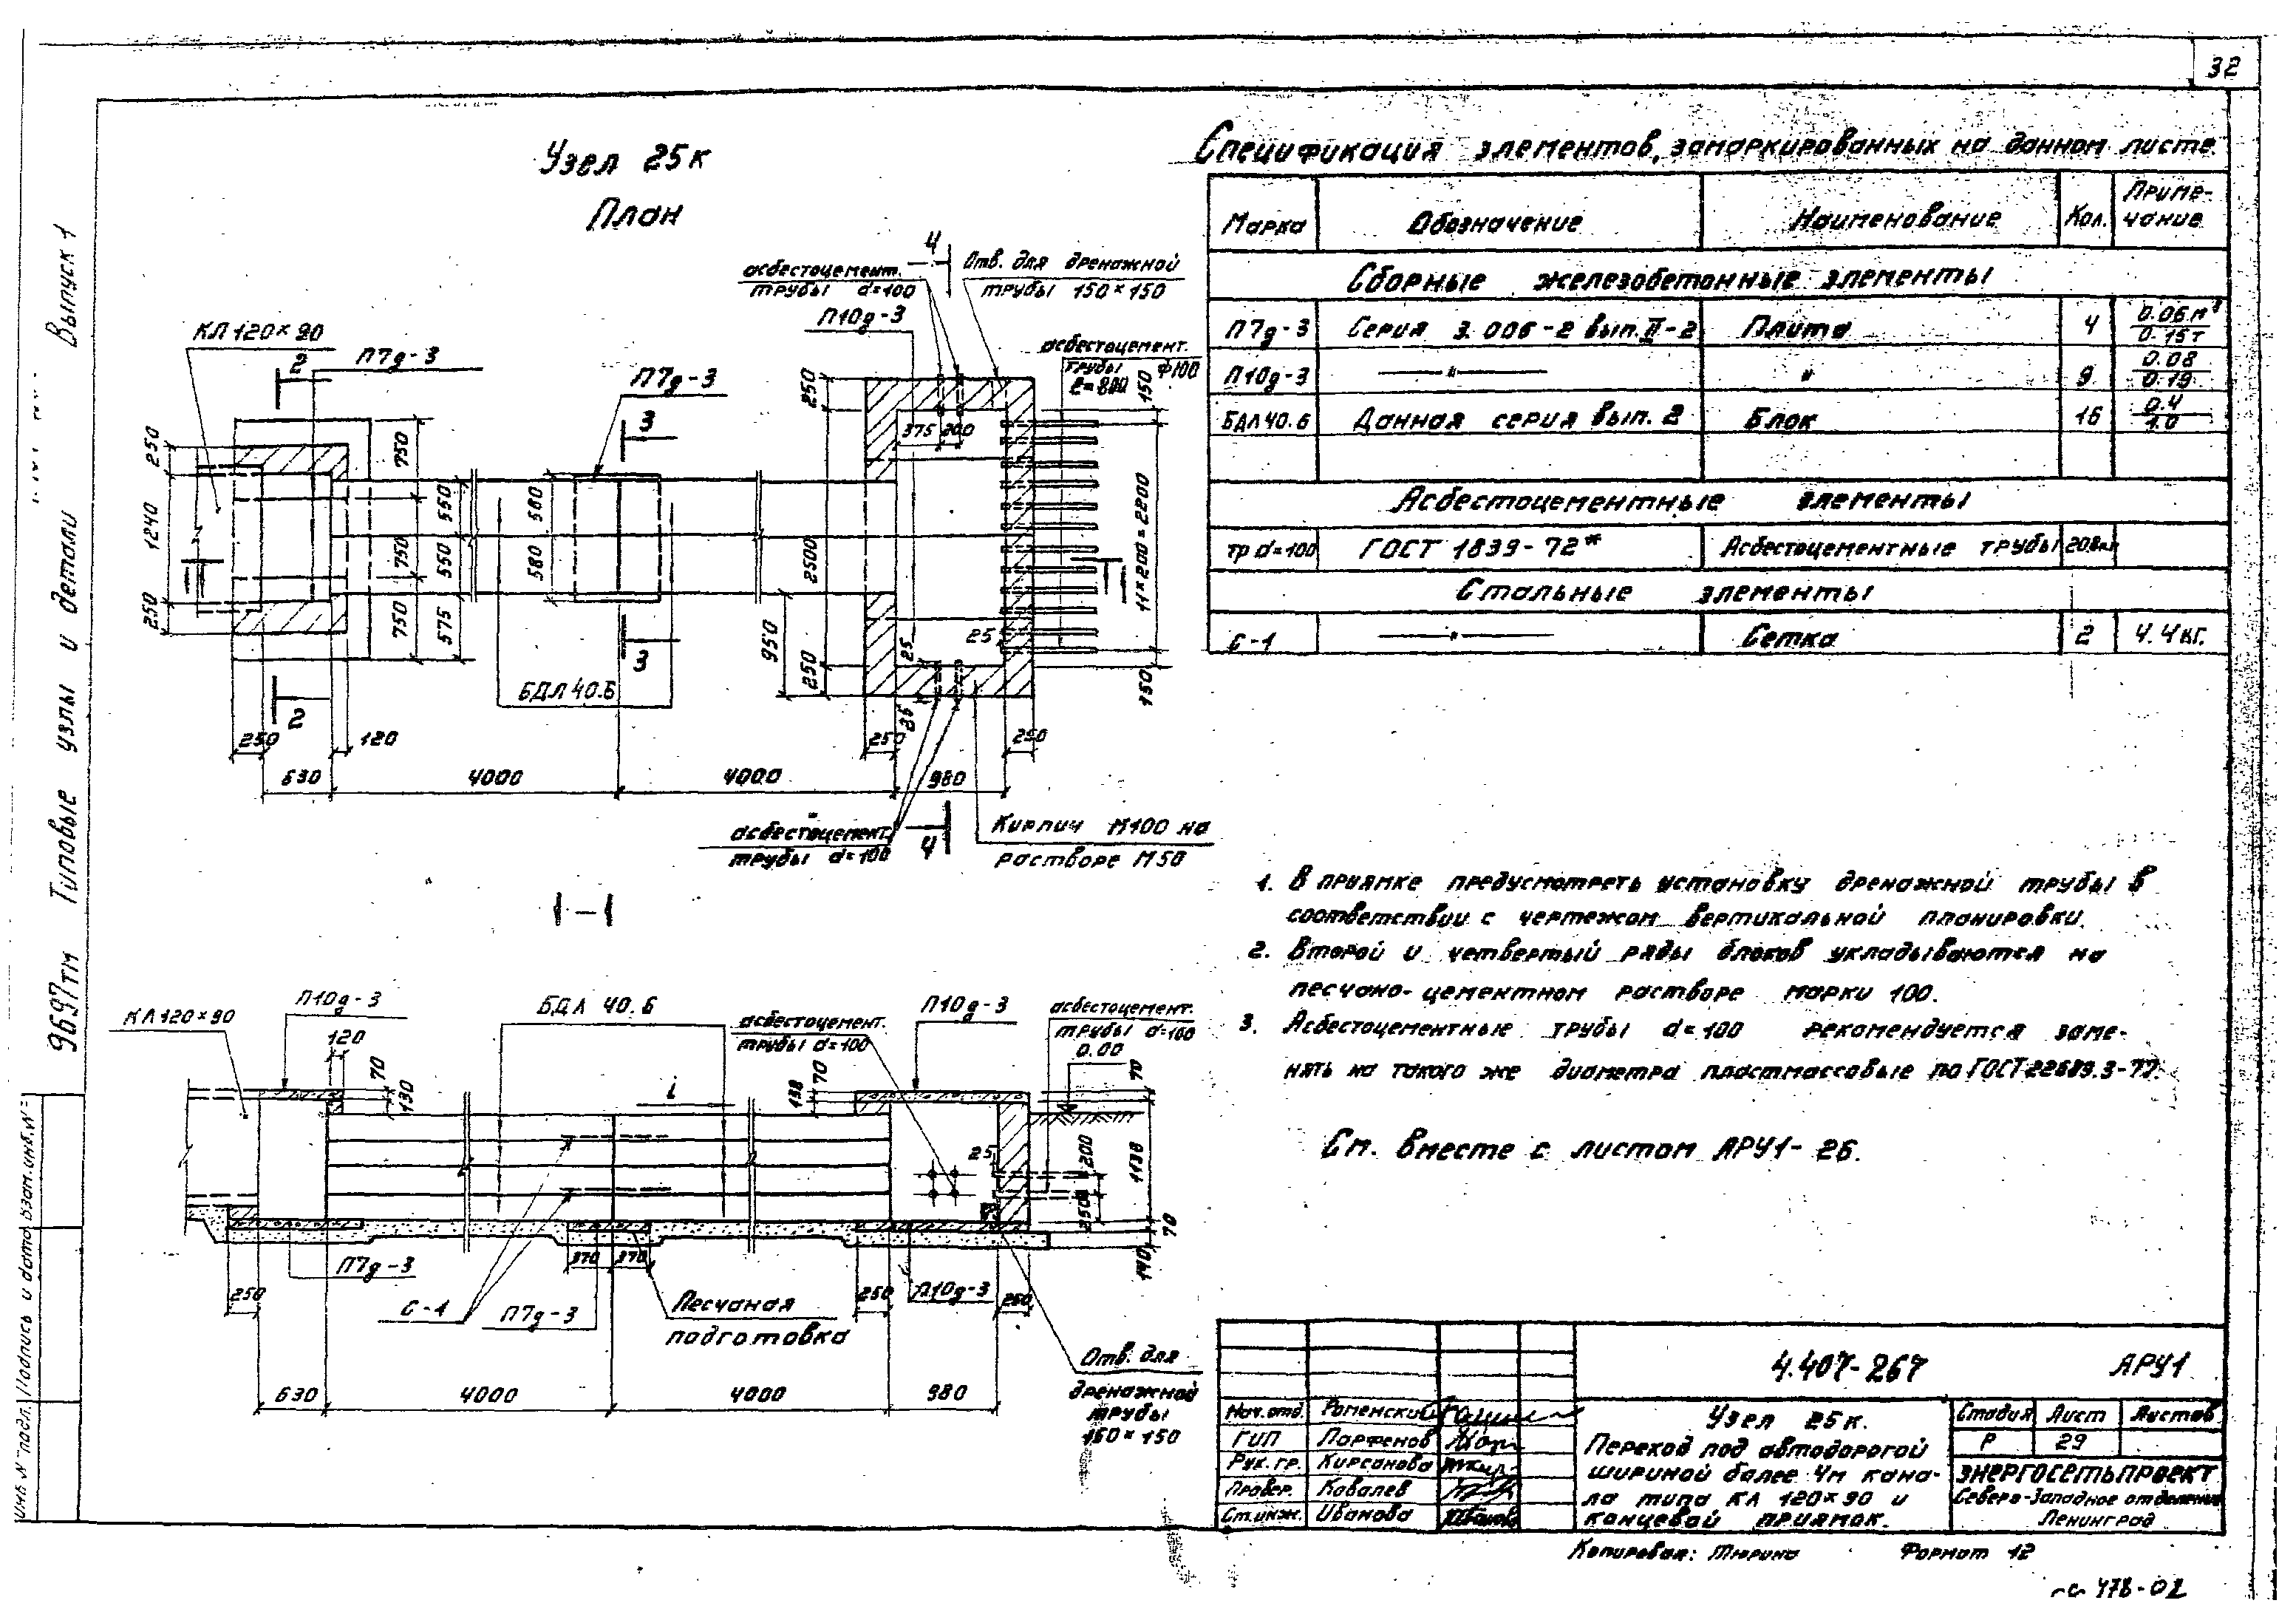 32
Узел 25к
План
КЛ 120×90
2
П7д-3
П7д-3
3
асбестоцемент.
трубы d=100
П10д-3
4
Отв. для дренажной
трубы 150×150
асбестоцемент.
трубы ф100
ℓ=800
250
1240
250
750
750
750
550
550
575
580
580
250
2500
250
950
375 200
150
11×200=2200
150
25
25
1
1
3
2
БДЛ 40.6
250
120
630
4000
4000
980
250
250
асбестоцемент.
трубы d=100
4
Кирпич М100 на
растворе М50
1-1
КЛ 120×90
П10д-3
120
70
130
БДЛ 40.6
асбестоцемент.
трубы d=100
i
138
70
П10д-3
асбестоцемент.
трубы d=100
0.00
70
25
200
250
1138
70
140
П7д-3
250
С-1
П7д-3
370
370
Песчаная
подготовка
250
П10д-3
250
Отв. для
дренажной
трубы
150×150
630
4000
4000
980
Спецификация элементов, замаркированных на данном листе
Марка Обозначение Наименование Кол. Приме-
чание
Сборные железобетонные элементы
П7д-3 Серия 3.006-2 вып. II-2 Плита 4 0.06м³
0.15т
П10д-3 —"— " 9 0.08
0.19
БДЛ 40.6 Данная серия вып. 2 Блок 16 0.4
1.0
Асбестоцементные элементы
тр d=100 ГОСТ 1839-72* Асбестоцементные трубы
Стальные элементы
С-1 —"— Сетка 2 4.4кг.
1. В приямке предусмотреть установку дренажной трубы в
соответствии с чертежом вертикальной планировки.
2. Второй и четвертый ряды блоков укладываются на
песчано-цементном растворе марки 100.
3. Асбестоцементные трубы d=100 рекомендуется заме-
нять на такого же диаметра пластмассовые по ГОСТ 22689.3-77.
См. вместе с листом АРУ1-26.
4.407-267 АРУ1
Нач. отд. Роменский
ГИП Парфенов
Рук. гр. Кирсанова
Провер. Ковалев
Ст. инж. Иванова
Узел 25к.
Переход под автодорогой
шириной более 4м кана-
ла типа КЛ 120×90 и
концевой приямок.
Стадия Лист Листов
Р 29
Энергосетьпроект
Северо-Западное отделение
Ленинград
Копировал: Тюрина Формат 12
478-02
9697тм Типовые узлы и детали Выпуск 1
Инв. № подл. Подпись и дата Взам. инв. №